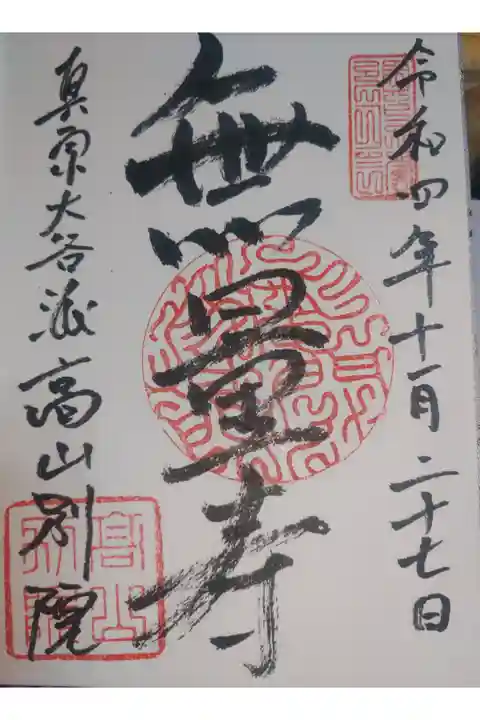 令和四年十一月二十七日
無量寿
真宗大谷派高山別院
高山別院